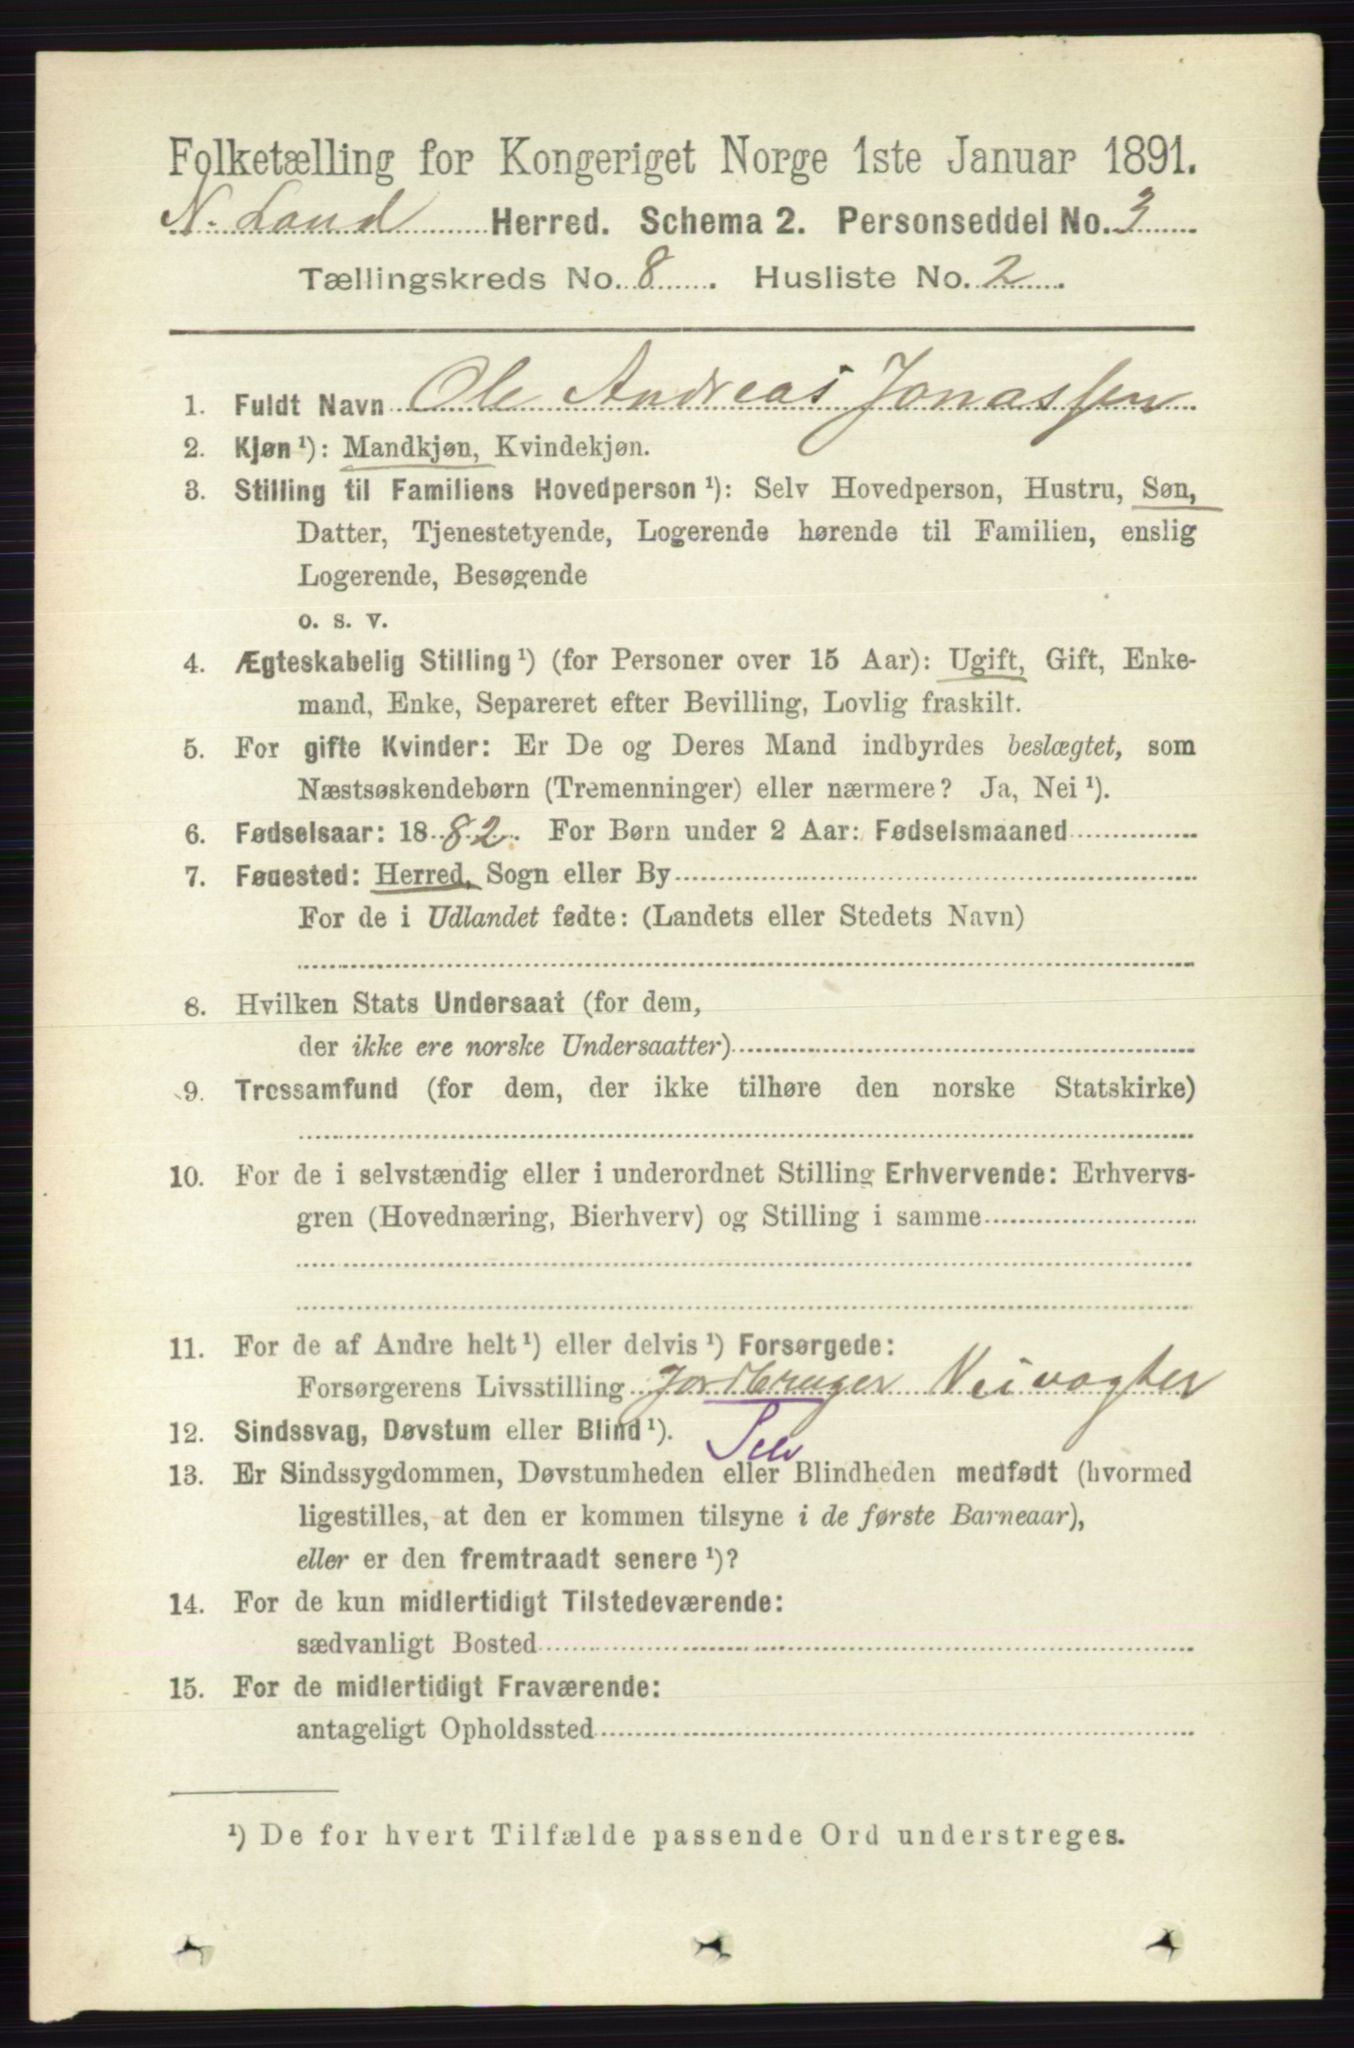 Folketælling for Kongeriget Norge 1ste Januar 1891.
N. Land Herred. Schema 2. Personseddel No. 3
Tællingskreds No. 8. Husliste No. 2.
1. Fuldt Navn Ole Andreas Jonassen
2. Kjøn ¹): Mandkjøn, Kvindekjøn.
3. Stilling til Familiens Hovedperson ¹): Selv Hovedperson, Hustru, Søn,
Datter, Tjenestetyende, Logerende hørende til Familien, enslig
Logerende, Besøgende
o. s. v.
4. Ægteskabelig Stilling ¹) (for Personer over 15 Aar): Ugift, Gift, Enke-
mand, Enke, Separeret efter Bevilling, Lovlig fraskilt.
5. For gifte Kvinder: Er De og Deres Mand indbyrdes beslægtet, som
Næstsøskendebørn (Tremenninger) eller nærmere? Ja, Nei ¹).
6. Fødselsaar: 1882. For Børn under 2 Aar: Fødselsmaaned
7. Fødested: Herred, Sogn eller By
For de i Udlandet fødte: (Landets eller Stedets Navn)
8. Hvilken Stats Undersaat (for dem,
der ikke ere norske Undersaatter)
9. Trossamfund (for dem, der ikke tilhøre den norske Statskirke)
10. For de i selvstændig eller i underordnet Stilling Erhvervende: Erhvervs-
gren (Hovednæring, Bierhverv) og Stilling i samme
11. For de af Andre helt ¹) eller delvis ¹) Forsørgede:
Forsørgerens Livsstilling Jordbruger Veivogter
12. Sindssvag, Døvstum eller Blind ¹). Selv
13. Er Sindssygdommen, Døvstumheden eller Blindheden medfødt (hvormed
ligestilles, at den er kommen tilsyne i de første Barneaar),
eller er den fremtraadt senere ¹)?
14. For de kun midlertidigt Tilstedeværende:
sædvanligt Bosted
15. For de midlertidigt Fraværende:
antageligt Opholdssted
¹) De for hvert Tilfælde passende Ord understreges.